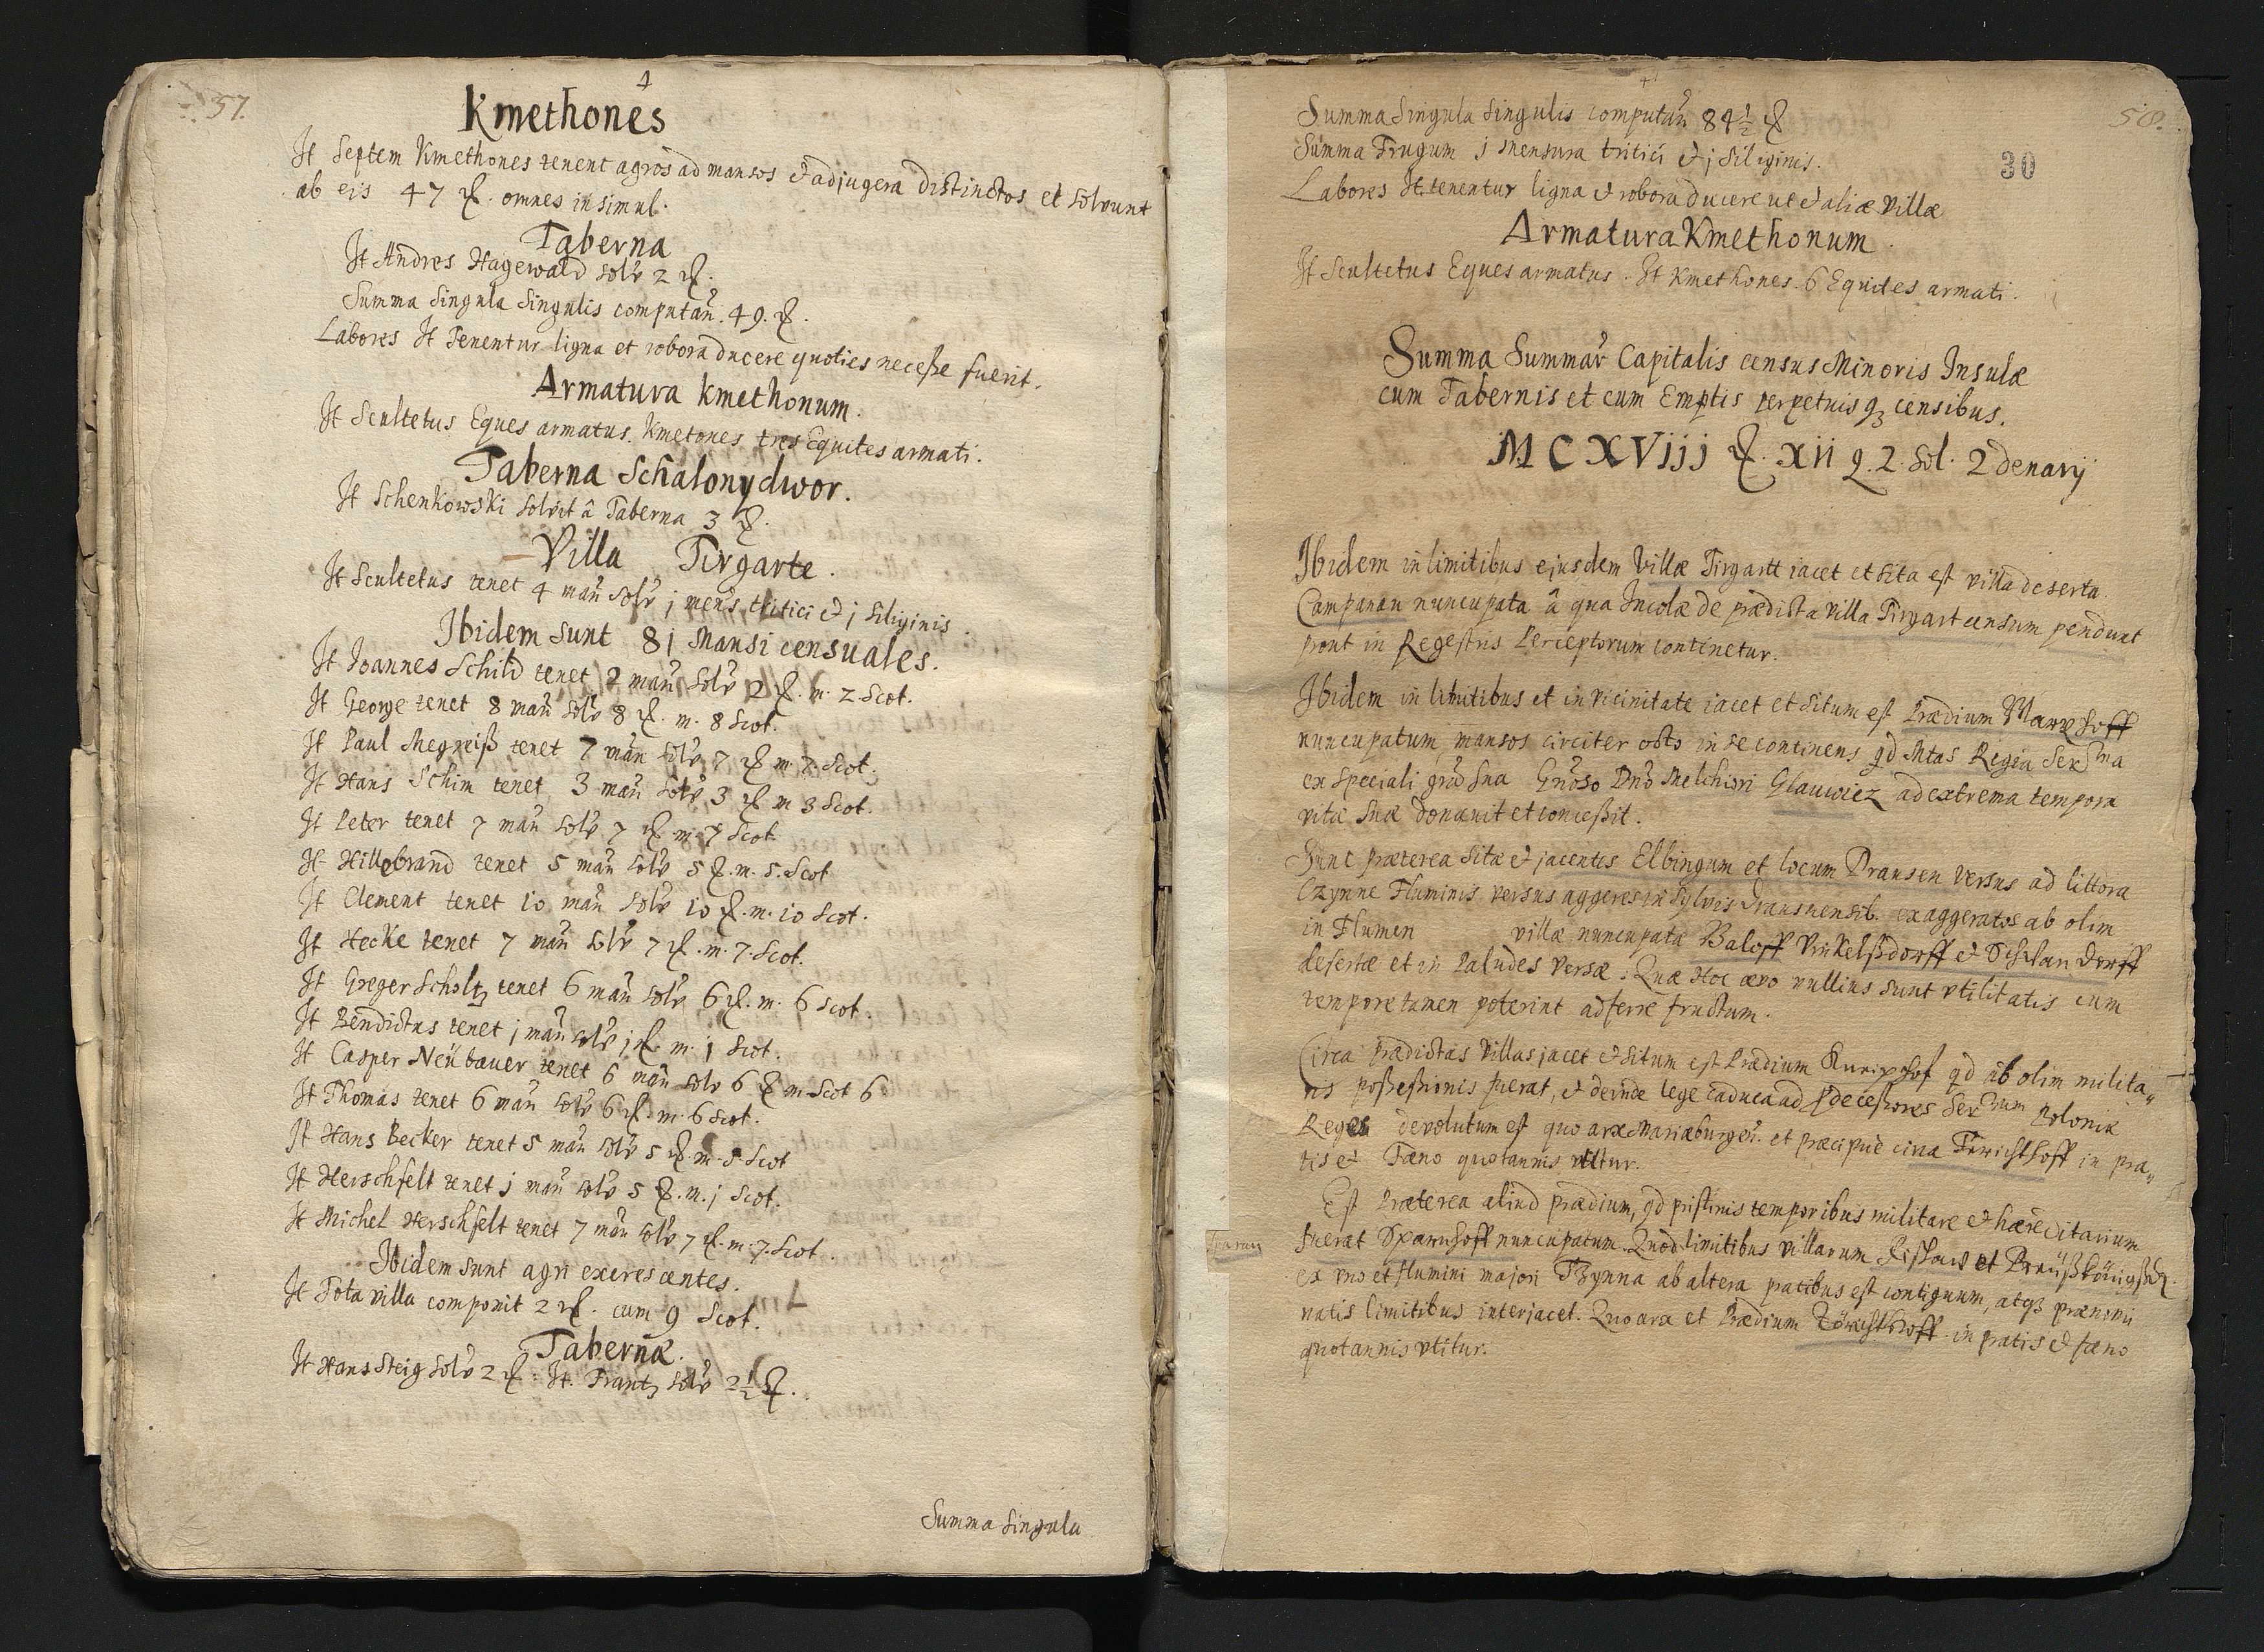 57.
Kmethones
It Septem Kmethones tenent agros ad mansos et adjugera distinctos et solvunt
ab eis 47 ₰. omnes in simul.
Taberna
It Andres Hagewald solv 2 ₰.
Summa Singula Singulis computan. 49. ₰.
Labores It Tenentur ligna et robora ducere quoties neceße fuerit.
Armatura Kmethonum.
It Scultetus Eques armatus. Kmetones tres Equites armati.
Taberna Schalonydwor.
It Schenkowski solvit â Taberna 3 ₰.
Villa Tirgarte.
It Scultetus tenet 4 man solv j mens tritici et j siliginis.
Ibidem sunt 8j Mansi censuales.
It Joannes Schild tenet 2 man solv 2 ₰. m. 2 Scot.
It George tenet 8 man solv 8 ₰. m. 8 Scot.
It Paul Megreiß tenet 7 man solv 7 ₰ m. 7. Scot.
It Hans Schim tenet 3 man solv 3 ₰ m 3 Scot.
It Peter tenet 7 man solv 7 ₰ m. 7 Scot.
It Hillebrand tenet 5 man solv 5 ₰. m. 5. Scot
It Clement tenet 10 man solv 10 ₰. m. 10 Scot.
It Hecke tenet 7 man solv 7 ₰. m. 7. Scot.
It Greger Scholtz tenet 6 man solv 6 ₰. m. 6 Scot.
It Bendictus tenet j man solv j ₰. m. j Scot.
It Casper Neübauer tenet 6 man solv 6 ₰ m. Scot 6
It Thomas tenet 6 man solv 6 ₰. m. 6 Scot.
It Hans Becker tenet 5 man solv 5 ₰. m. 5. Scot
It Herschfelt tenet j man solv 5 ₰. m. j Scot.
It Michel Herschfelt tenet 7 man solv 7 ₰. m. 7. Scot.
Ibidem sunt agri excrescentes.
It Tota villa componit 2 ₰. cum 9 Scot.
Tabernæ.
It Hans Steig solv 2 ₰. It. Frantz solv 2½ ₰.
Summa Singula
58.
30
Summa Singula Singulis computan 84½ ₰
Summa Frugum j mensura tritici et j Siliginis.
Labores It tenentur ligna et robora ducere ut et aliæ Villæ
Armatura Kmethonum.
It Scultetus Eques armatus. It Kmethones. 6 Equites armati.
Summa Summar Capitalis census Minoris Insulæ
cum Tabernis et cum Emptis perpetuisqz censibus.
MCXVIIJ ₰. XII q. 2. Sol. 2 denarij
Ibidem in limitibus ejusdem Villæ Tirgartt iacet et sita est villa deserta.
Campanau nuncupata â qua Incolæ de prædicta villa Tirgart censum pendunt
prout in Regestris Perceptorum continetur.
Ibidem in limitibus et in vicinitate iacet et situm est Prædium Marxhoff
nuncupatum mansos circiter octo in se continens qd Mtas Regia Serma
ex speciali gra sua Gnoso Dno Melchiori Glauwiez ad extrema tempora
vitæ suæ donauit et conceßit.
Sunt præterea sitæ et jacentes Elbingum et locum Drausen versus ad littora
Czynne Fluminis versus aggeres in Sylvis Drausnensib. exaggeratos ab olim
in Flumen villæ nuncupatæ Baloff Vinkelßdorff et Schlandorff
desertæ et in Paludes versæ: Quæ Hoc ævo nullius sunt vtilitatis cum
tempore tamen poterint adferre fructum.
Circa prædictas Villas jacet et situm est Prædium Kurixhof qd ab olim milita„
ris poßeßionis fuerat, et deinde lege caduca ad Pdeceßores Sermum Poloniæ
Reges devolutum est quo arx Mariæburgen. et præcipue circa Tirwichthoff in pra„
tis et Fæno quotannis vtitur.
Est Præterea aliud prædium, qd pristinis temporibus militare et hæreditarium
fuerat Sparuhoff nuncupatum. Quod limitibus villarum Fislaws et Preüßkönigßdf.
ex vno et flumini majori Thynna ab altera patibus est contiguum, atqz prænomi
natis limitibus interjacet. Quo arx et Prædium Töwichthoff in pratis et fæno
quotannis vtitur.